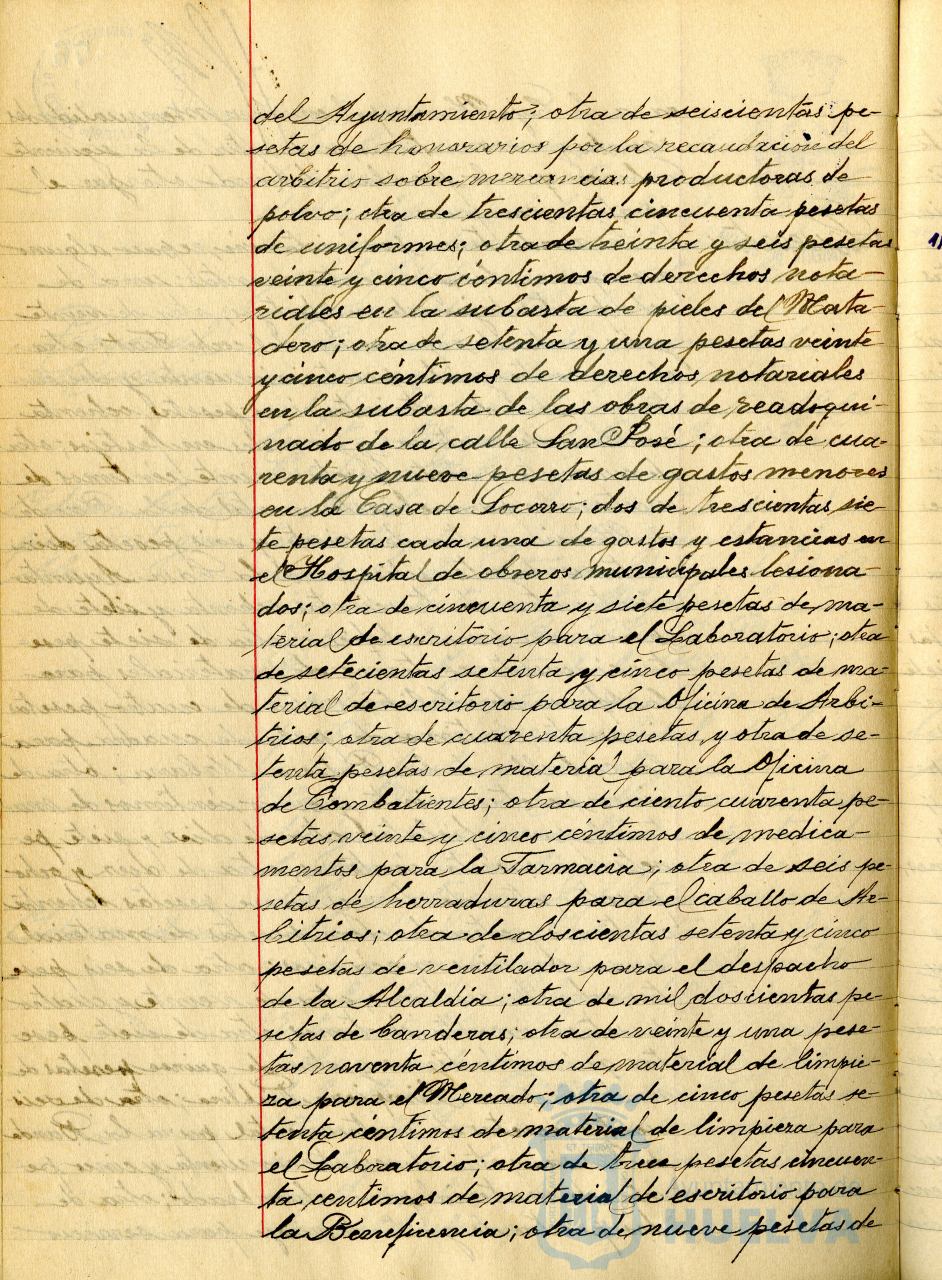 del Ayuntamiento; otra de seiscientas pe-
setas de honorarios por la recaudación del
arbitrio sobre mercancias productoras de
polvo; otra de trescientas cincuenta pesetas
de uniformes; otra de treinta y seis pesetas
veinte y cinco céntimos de derechos nota-
riales en la subasta de pieles del Mata-
dero; otra de setenta y una pesetas veinte
y cinco céntimos de derechos notariales
en la subasta de las obras de readoqui-
nado de la calle San José; otra de cua-
renta y nueve pesetas de gastos menores
en la Casa de Socorro; dos de trescientas sie-
te pesetas cada una de gastos y estancias en
el Hospital de obreros municipales lesiona-
dos; otra de cincuenta y siete pesetas de ma-
terial de escritorio para el Laboratorio; otra
de setecientas setenta y cinco pesetas de ma-
terial de escritorio para la Oficina de Arbi-
trios; otra de cuarenta pesetas y otra de se-
tenta pesetas de material para la Oficina
de Combatientes; otra de ciento cuarenta pe-
setas veinte y cinco céntimos de medica-
mentos para la Farmacia; otra de seis pe-
setas de herraduras para el caballo de Ar-
bitrios; otra de doscientas setenta y cinco
pesetas de ventilador para el despacho
de la Alcaldia; otra de mil doscientas pe-
setas de banderas; otra de veinte y una pese-
tas noventa céntimos de material de limpie-
za para el Mercado; otra de cinco pesetas se-
tenta céntimos de material de limpieza para
el Laboratorio; otra de trece pesetas cincuen-
ta centimos de material de escritorio para
la Beneficencia; otra de nueve pesetas de
HUELVA